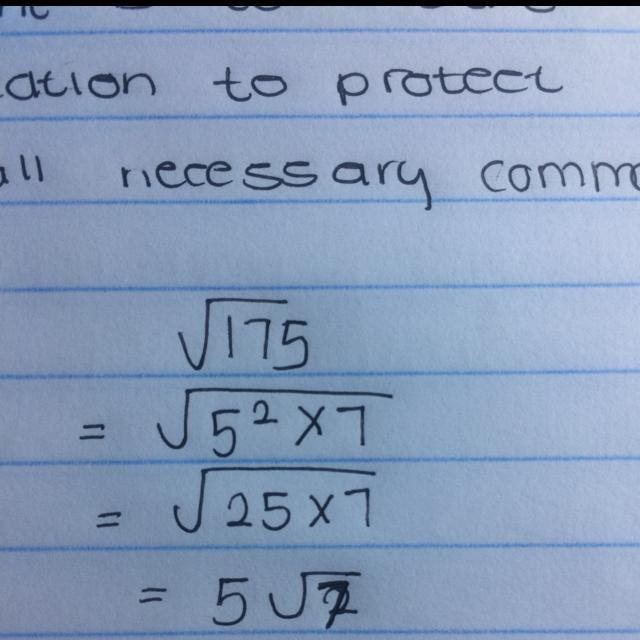 ation to protect
all necessary comm
√175
= √5² × 7
= √25 × 7
= 5 √7